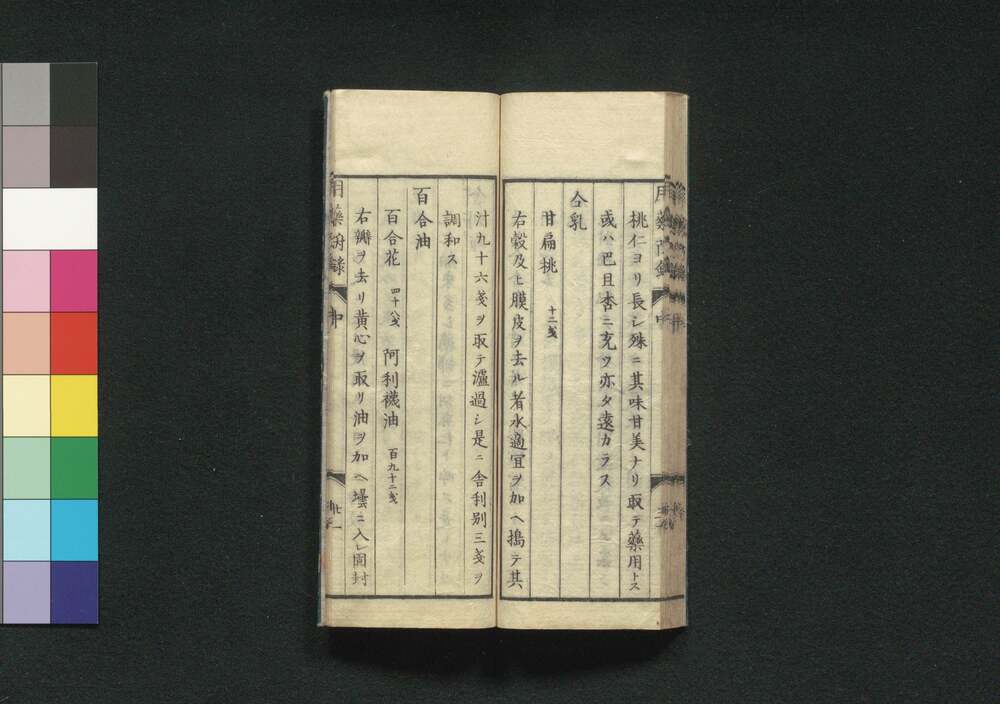 桃仁ヨリ長シ殊ニ其味甘美ナリ取テ藥用トス
或ハ巴且杏ニ充ツ亦タ遠カラス
仝乳
甘扁桃 十二戔
右穀及ヒ膜皮ヲ去ル者水適宜ヲ加ヘ搗テ其
汁九十六戔ヲ取テ瀘過シ是ニ舎利別三戔ヲ
調和ス
百合油
百合花 四十八戔 阿利襪油 百九十二戔
右瓣ヲ去リ黄心ヲ取リ油ヲ加ヘ壜ニ入レ固封
用藥附録 中